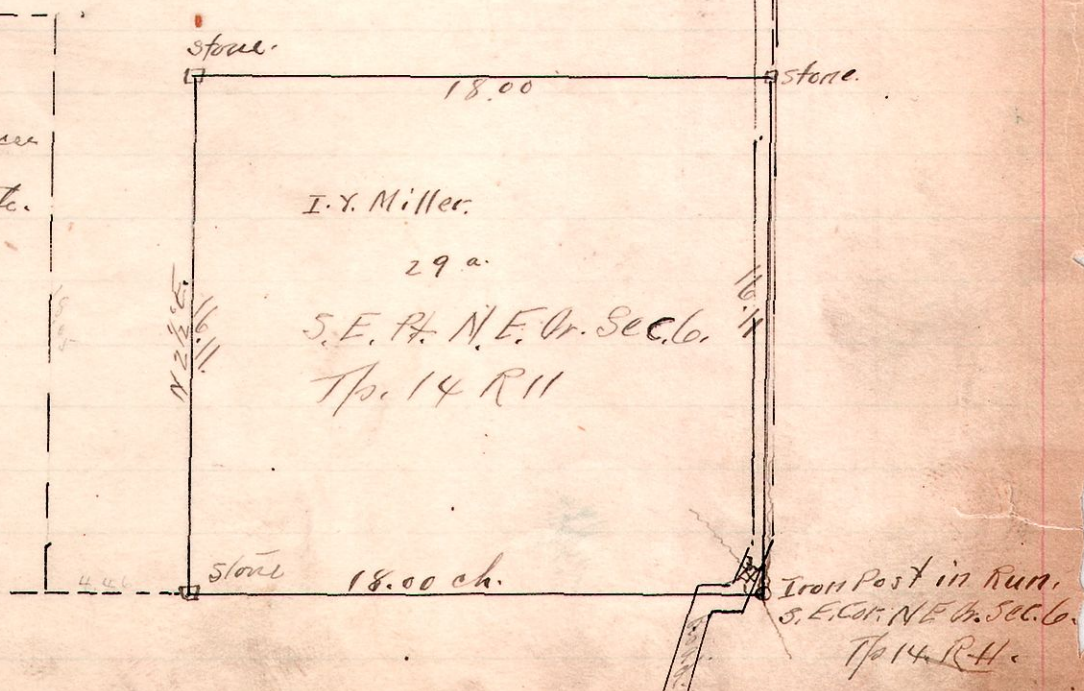 stone.
18.00
stone.
I. Y. Miller.
29 a.
S. E. Pt. N. E. Qr. Sec. 6.
Tp. 14 R 11
N 2½° E.
16.11
16.11
stone
18.00 ch.
Iron Post in Run.
S. E. Cor. N E Qr. Sec. 6.
Tp 14. R 11.